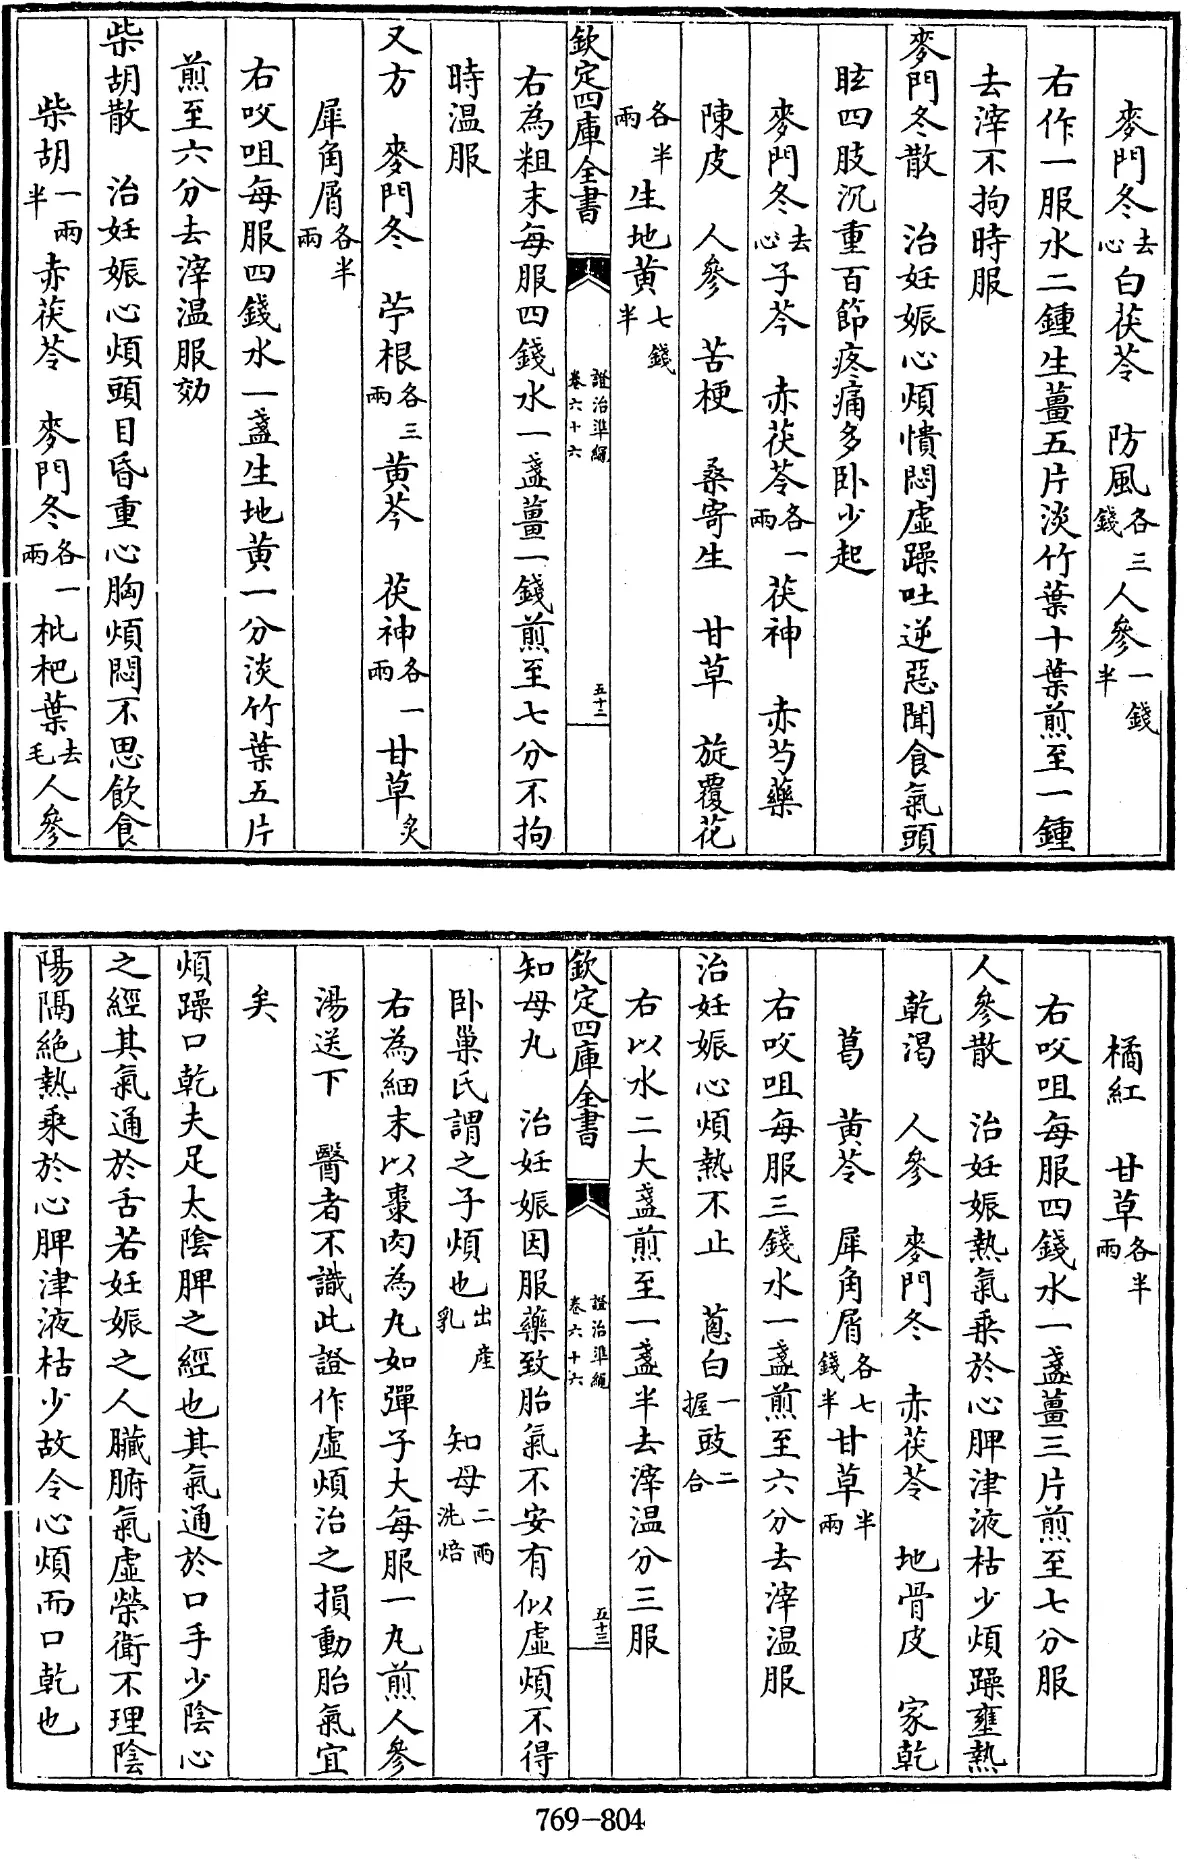 麥門冬去心白茯苓　防風各三錢人參一錢半
右作一服水二鍾生薑五片淡竹葉十葉煎至一鍾
去滓不拘時服
麥門冬散　治妊娠心煩憒悶虛躁吐逆惡聞食氣頭
眩四肢沉重百節疼痛多卧少起
麥門冬去心子芩　赤茯苓各一兩茯神　赤芍藥
陳皮　人參　苦梗　桑寄生　甘草　旋覆花
各半兩生地黄七錢半
欽定四庫全書　證治準繩卷六十六　五十二
右為粗末每服四錢水一盞薑一錢煎至七分不拘
時温服
又方　麥門冬　苧根各三兩黄芩　茯神各一兩甘草炙
犀角屑各半兩
右㕮咀每服四錢水一盞生地黄一分淡竹葉五片
煎至六分去滓温服効
柴胡散　治妊娠心煩頭目昏重心胸煩悶不思飲食
柴胡一兩半赤茯苓　麥門冬各一兩枇杷葉去毛人參
橘紅　甘草各半兩
右㕮咀每服四錢水一盞薑三片煎至七分服
人參散　治妊娠熱氣乗於心脾津液枯少煩躁壅熱
乾渴　人參　麥門冬　赤茯苓　地骨皮　家乾
葛　黄芩　犀角屑各七錢半甘草半兩
右㕮咀每服三錢水一盞煎至六分去滓温服
治妊娠心煩熱不止　蔥白一握豉二合
右以水二大盞煎至一盞半去滓温分三服
欽定四庫全書　證治準繩卷六十六　五十三
知母丸　治妊娠因服藥致胎氣不安有似虛煩不得
卧巢氏謂之子煩也出産乳　知母二兩洗焙
右為細末以棗肉為丸如彈子大每服一丸煎人參
湯送下　醫者不識此證作虛煩治之損動胎氣宜
矣
煩躁口乾夫足太陰脾之經也其氣通於口手少陰心
之經其氣通於舌若妊娠之人臟腑氣虛榮衛不理陰
陽隔絶熱乗於心脾津液枯少故令心煩而口乾也
769-804